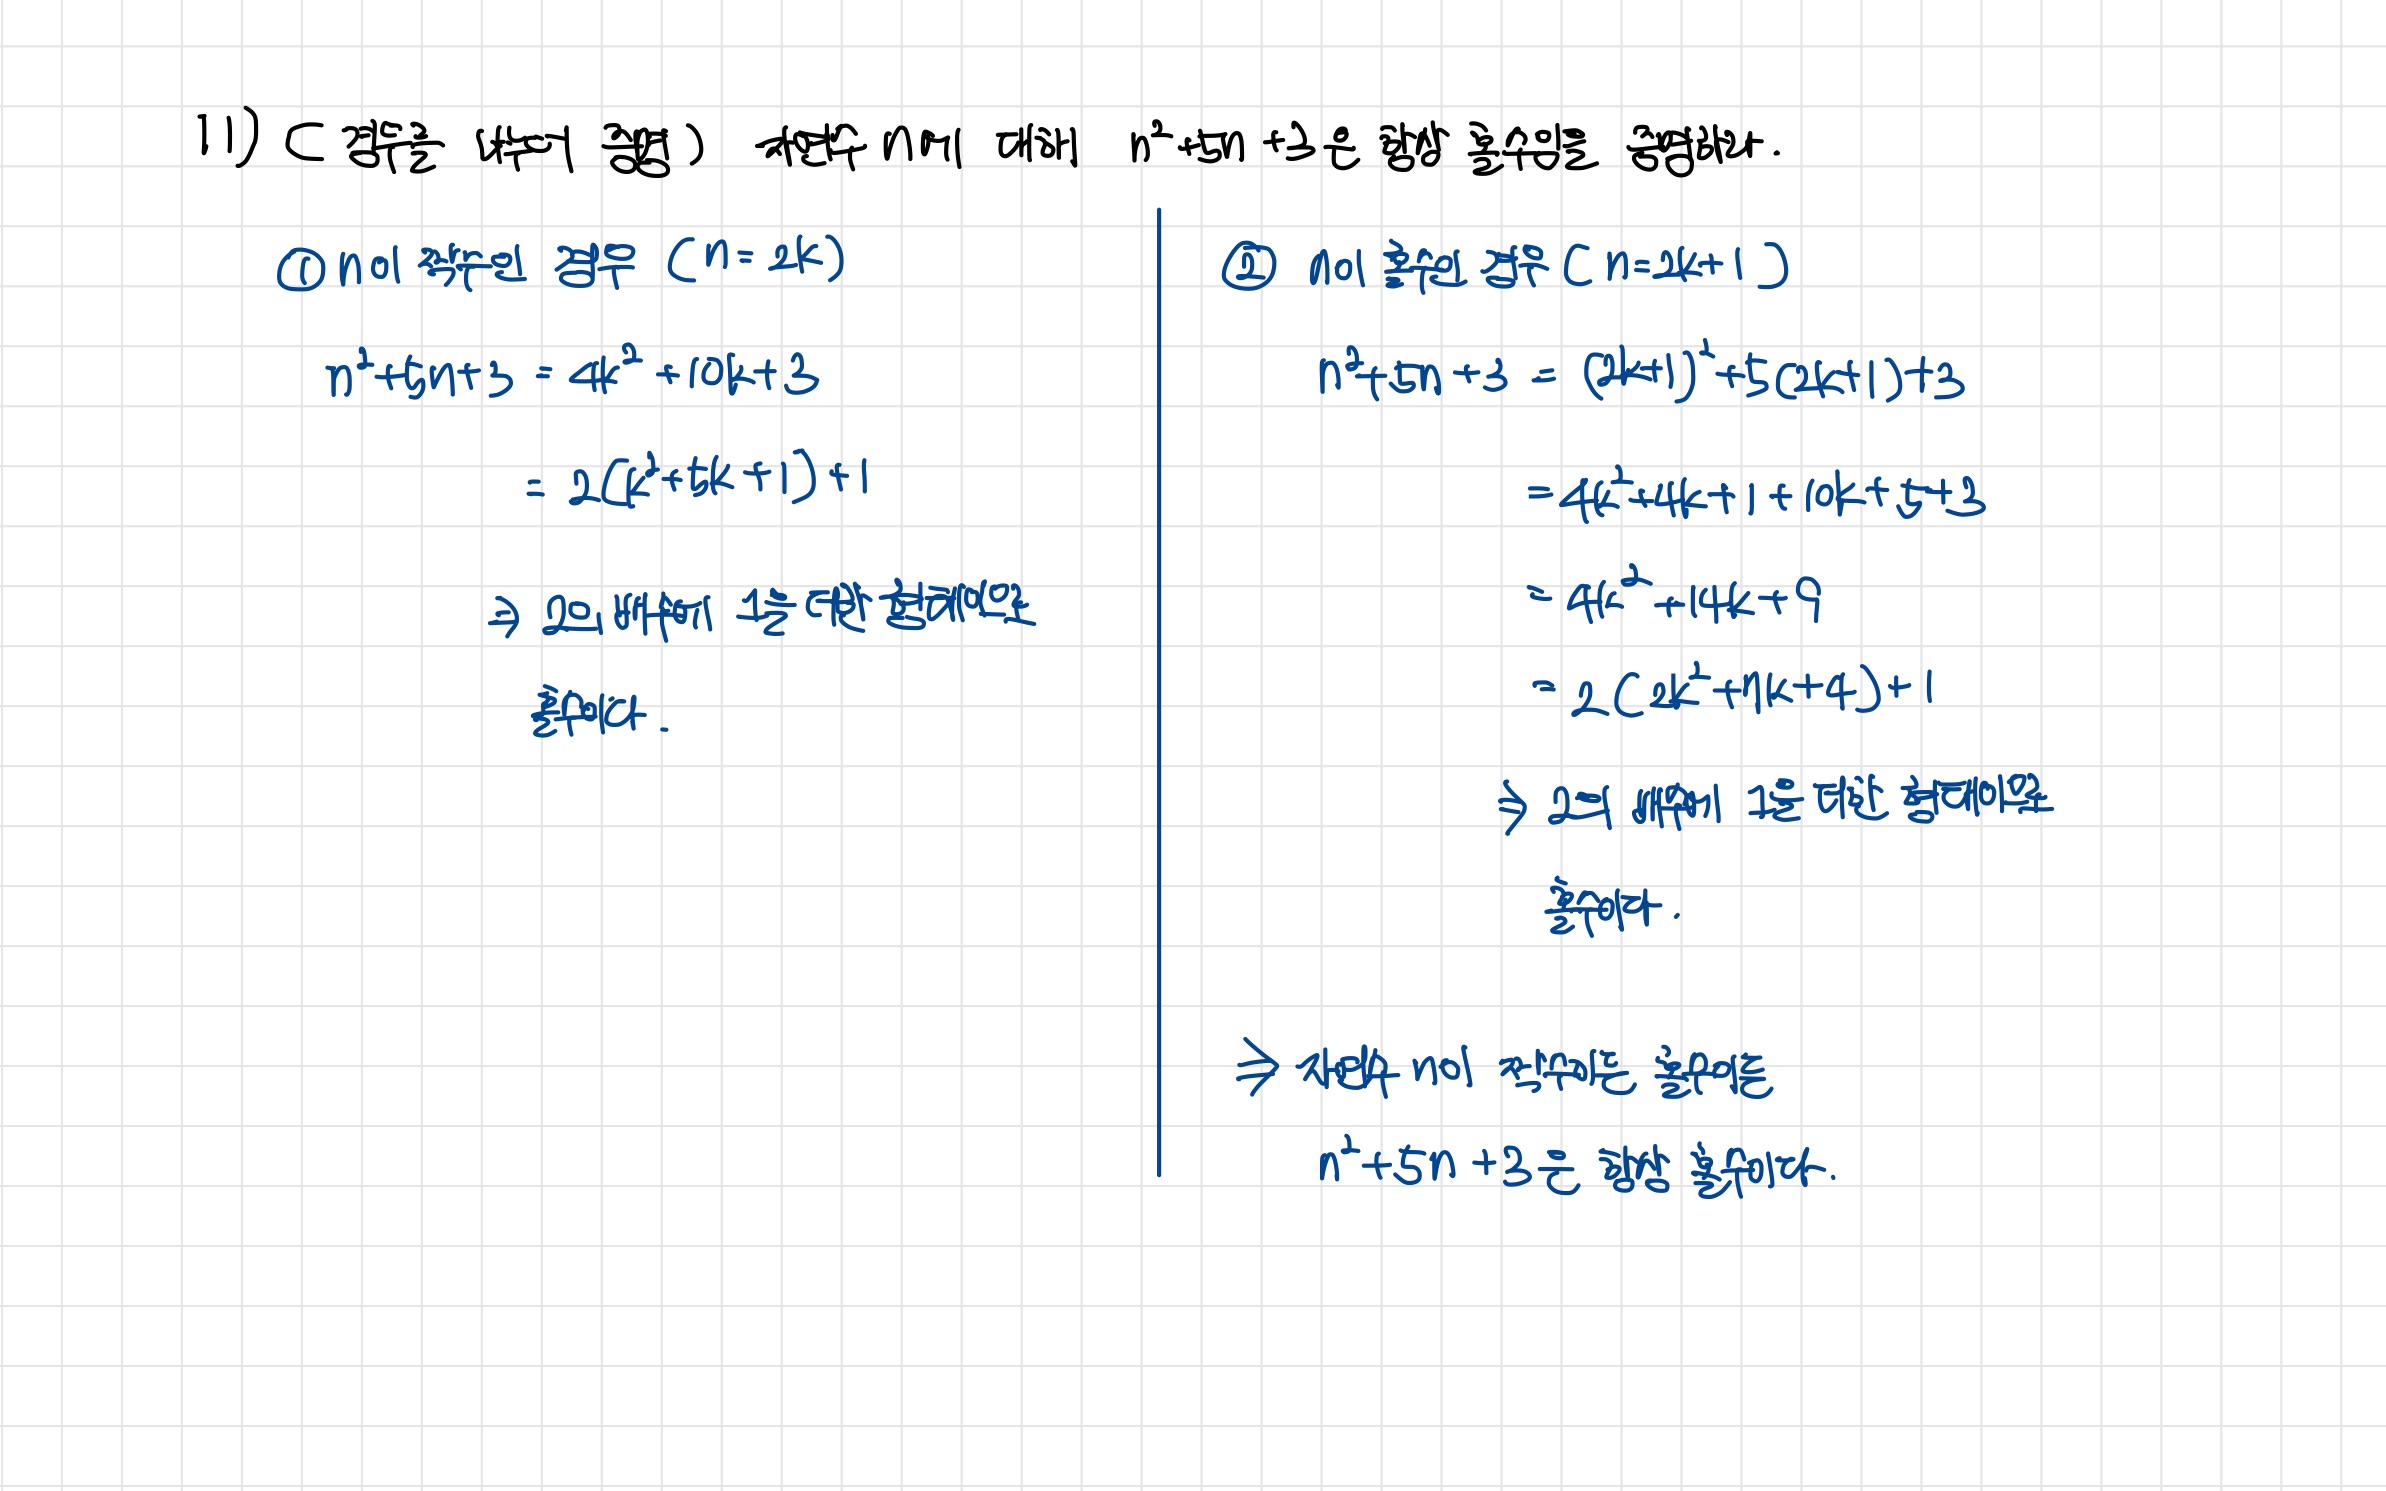 11) (경우를 나누어 증명) 자연수 n에 대해 n²+5n+3은 항상 홀수임을 증명하라.
① n이 짝수인 경우 (n=2k)
n²+5n+3 = 4k²+10k+3
= 2(k²+5k+1)+1
⇒ 2의 배수에 1을 더한 형태이므로
홀수이다.
② n이 홀수인 경우 (n=2k+1)
n²+5n+3 = (2k+1)²+5(2k+1)+3
=4k²+4k+1+10k+5+3
= 4k²+14k+9
= 2(2k²+7k+4)+1
⇒ 2의 배수에 1을 더한 형태이므로
홀수이다.
⇒ 자연수 n이 짝수이든 홀수이든
n²+5n+3은 항상 홀수이다.